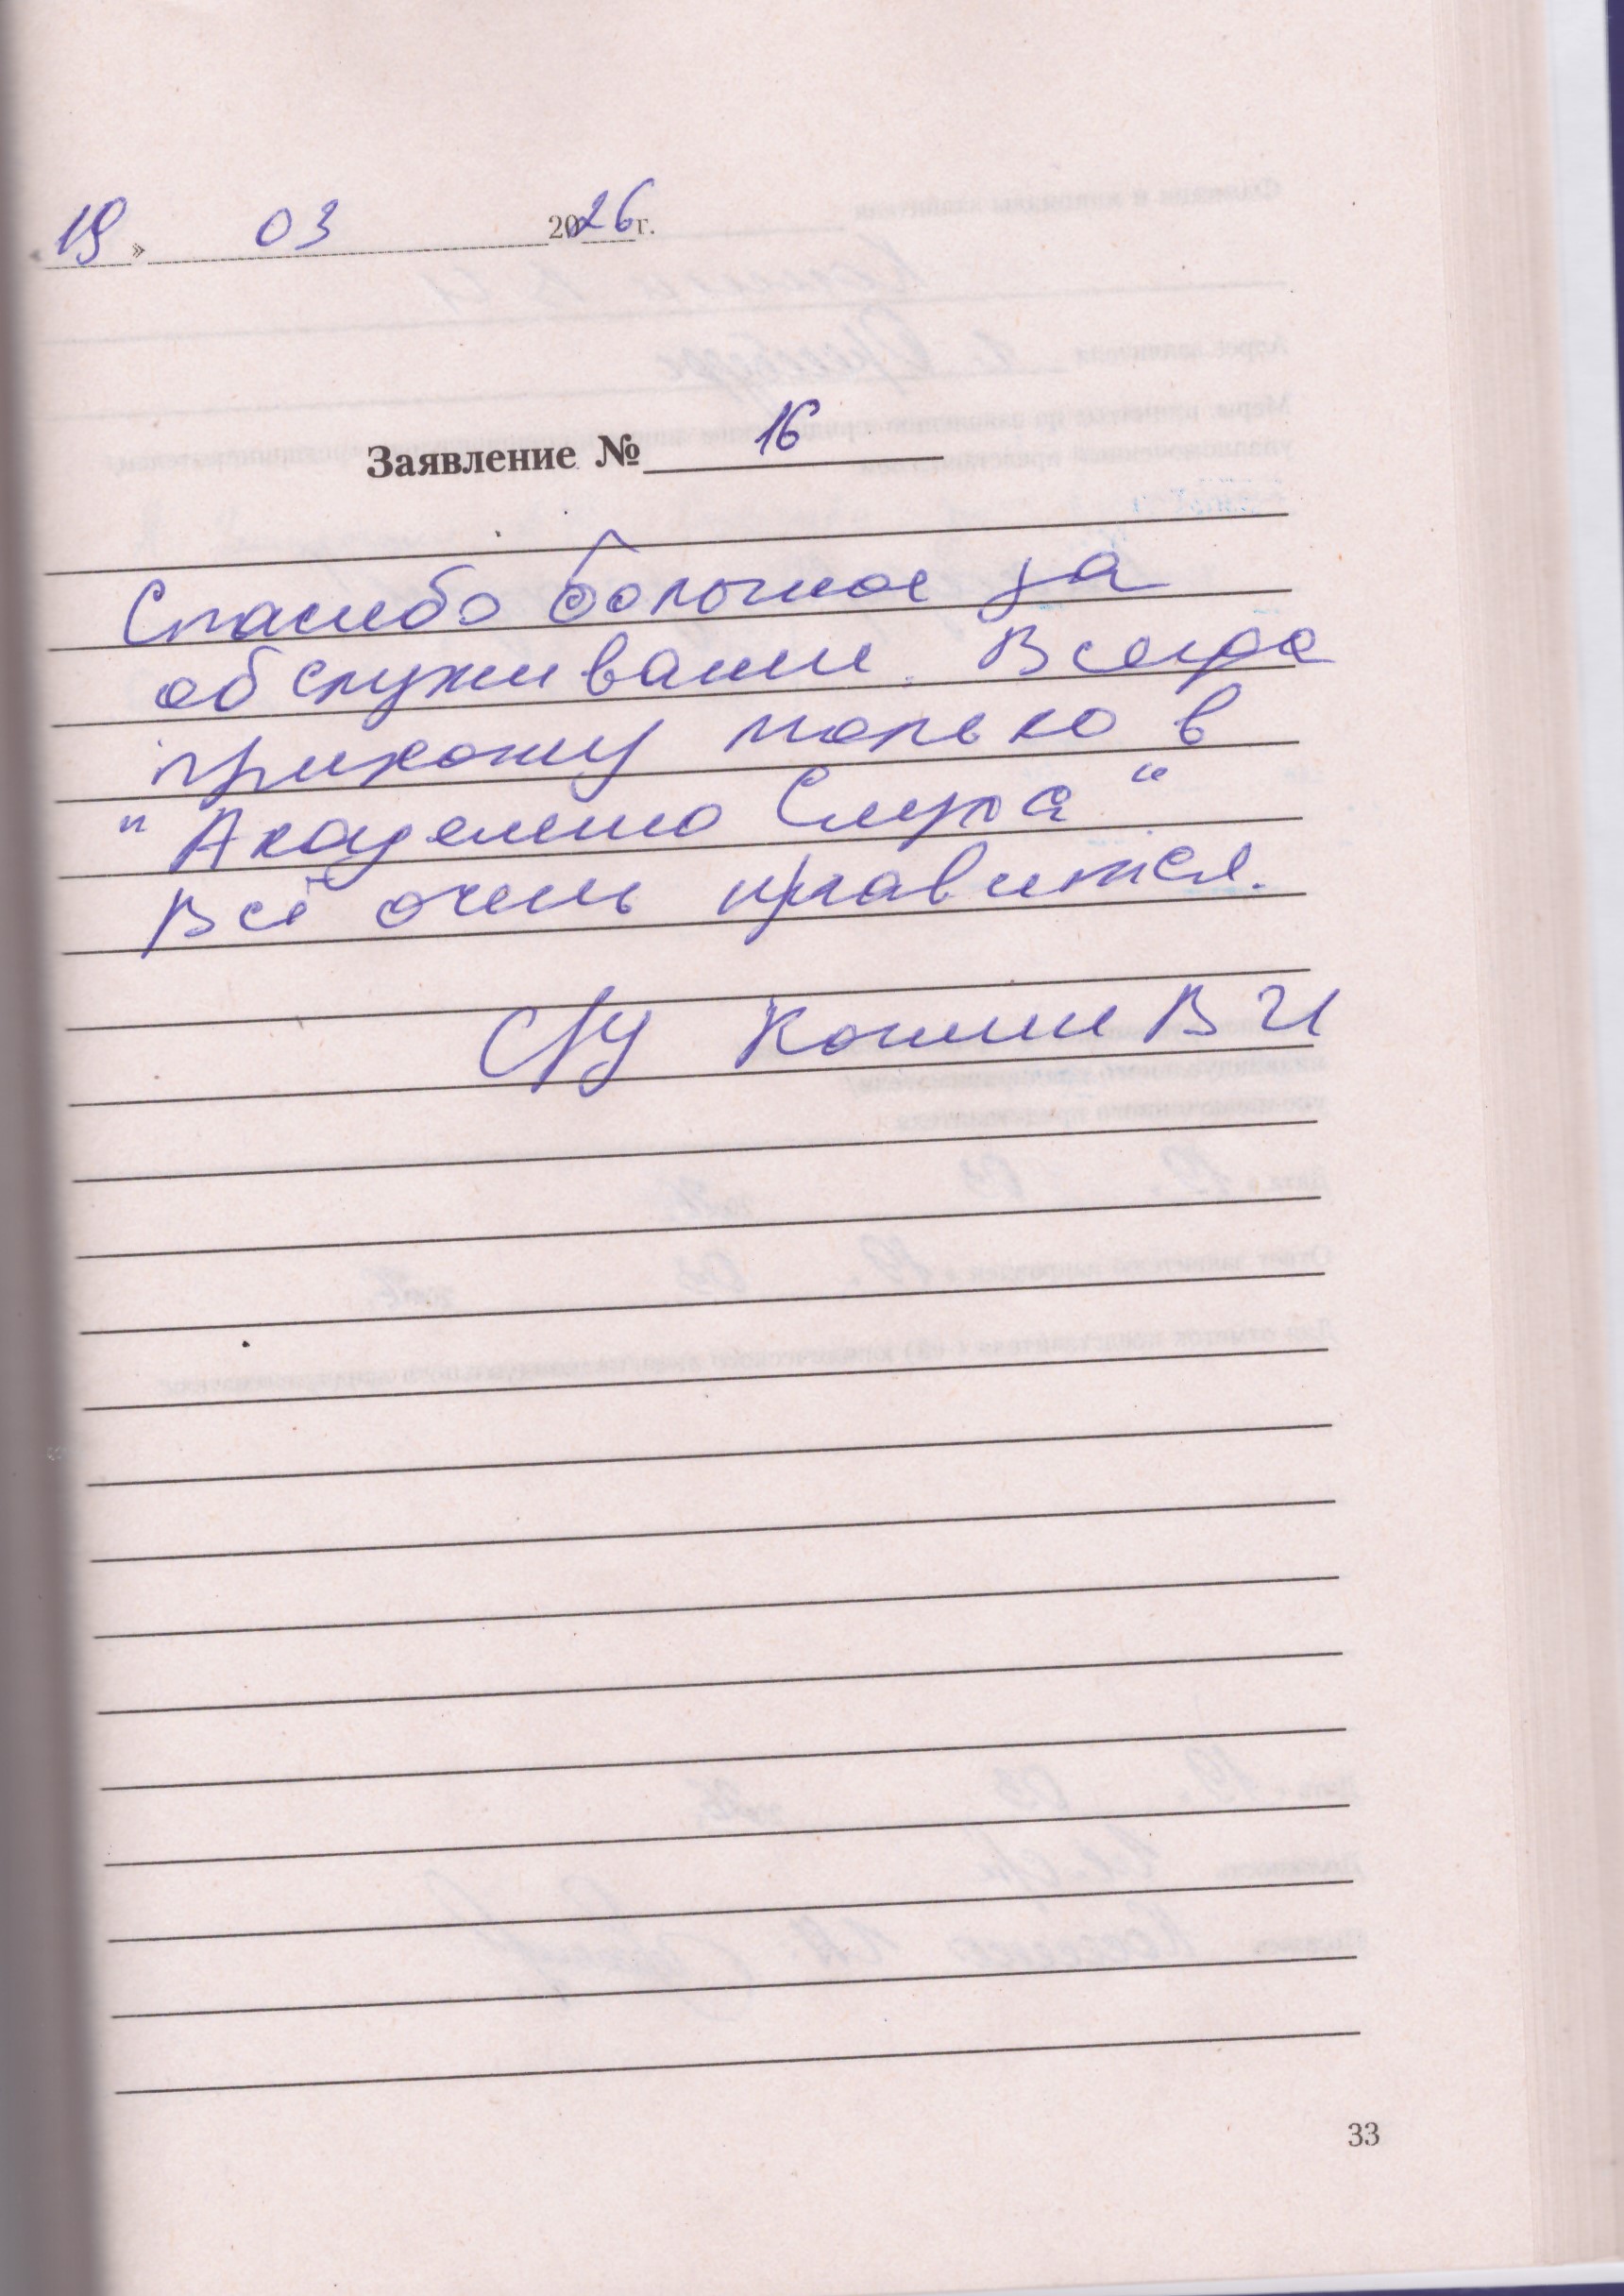 «19» 03 2026 г.
Заявление № 16
Спасибо большое за
обслуживание. Всегда
прихожу только в
"Академию Слуха"
Всё очень нравится.
В И
33